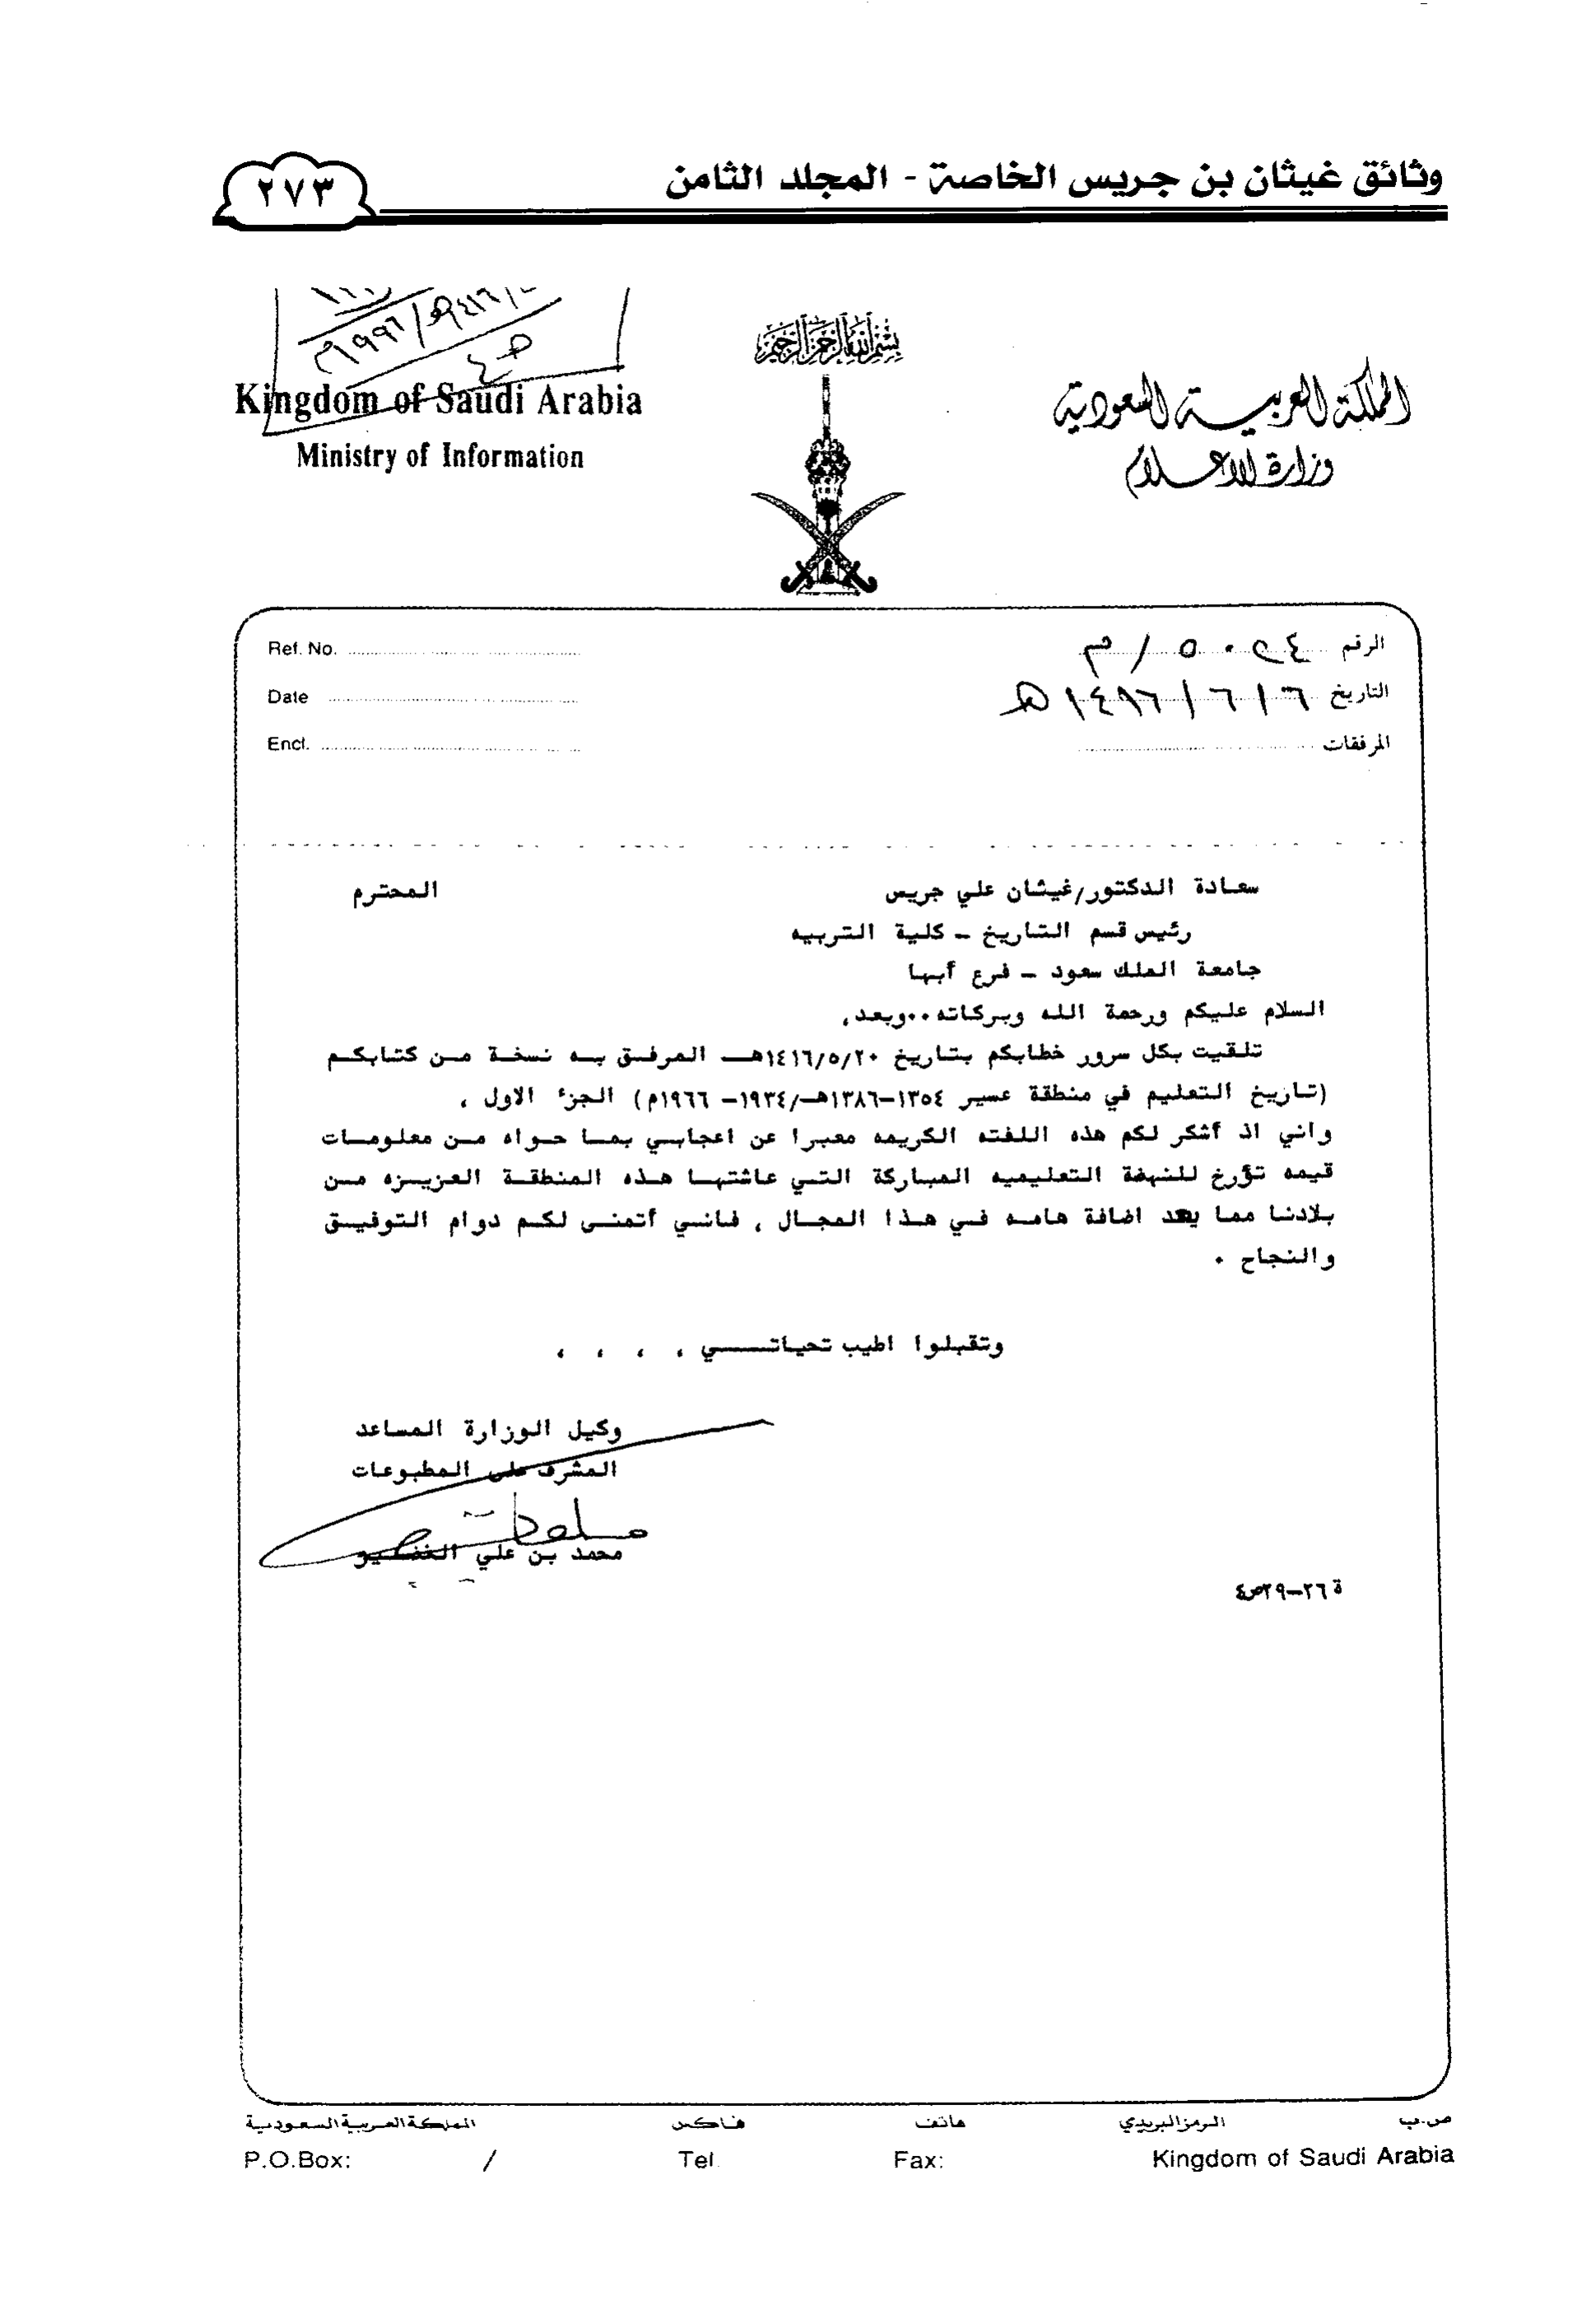 وثائق غيثان بن جريس الخاصة - المجلد الثامن
٢٧٣
بسم الله الرحمن الرحيم
المملكة العربية السعودية
وزارة الاعلام
Kingdom of Saudi Arabia
Ministry of Information
الرقم
Ref. No.
التاريخ
Date
المرفقات
Encl.
سعادة الدكتور/غيثان علي جريس المحترم
رئيس قسم التاريخ – كلية التربيه
جامعة الملك سعود – فرع أبها
السلام عليكم ورحمة الله وبركاته٠٠وبعد،
تلقيت بكل سرور خطابكم بتاريخ ١٤١٦/٥/٢٠هـ المرفق به نسخة من كتابكم
(تاريخ التعليم في منطقة عسير ١٣٥٤–١٣٨٦هـ/١٩٣٤– ١٩٦٦م) الجزء الاول ،
واني اذ أشكر لكم هذه اللفته الكريمه معبرا عن اعجابي بما حواه من معلومات
قيمه تؤرخ للنهضة التعليميه المباركة التي عاشتها هذه المنطقة العزيزه من
بلادنا مما يعد اضافة هامه في هذا المجال ، فاني أتمنى لكم دوام التوفيق
والنجاح ٠
وتقبلوا اطيب تحياتي ، ، ، ،
وكيل الوزارة المساعد
المشرف على المطبوعات
محمد بن علي
ة ٢٦–٢٩ص٤
ص.ب الرمز البريدي هاتف فاكس المملكة العربية السعودية
P.O.Box: / Tel Fax: Kingdom of Saudi Arabia